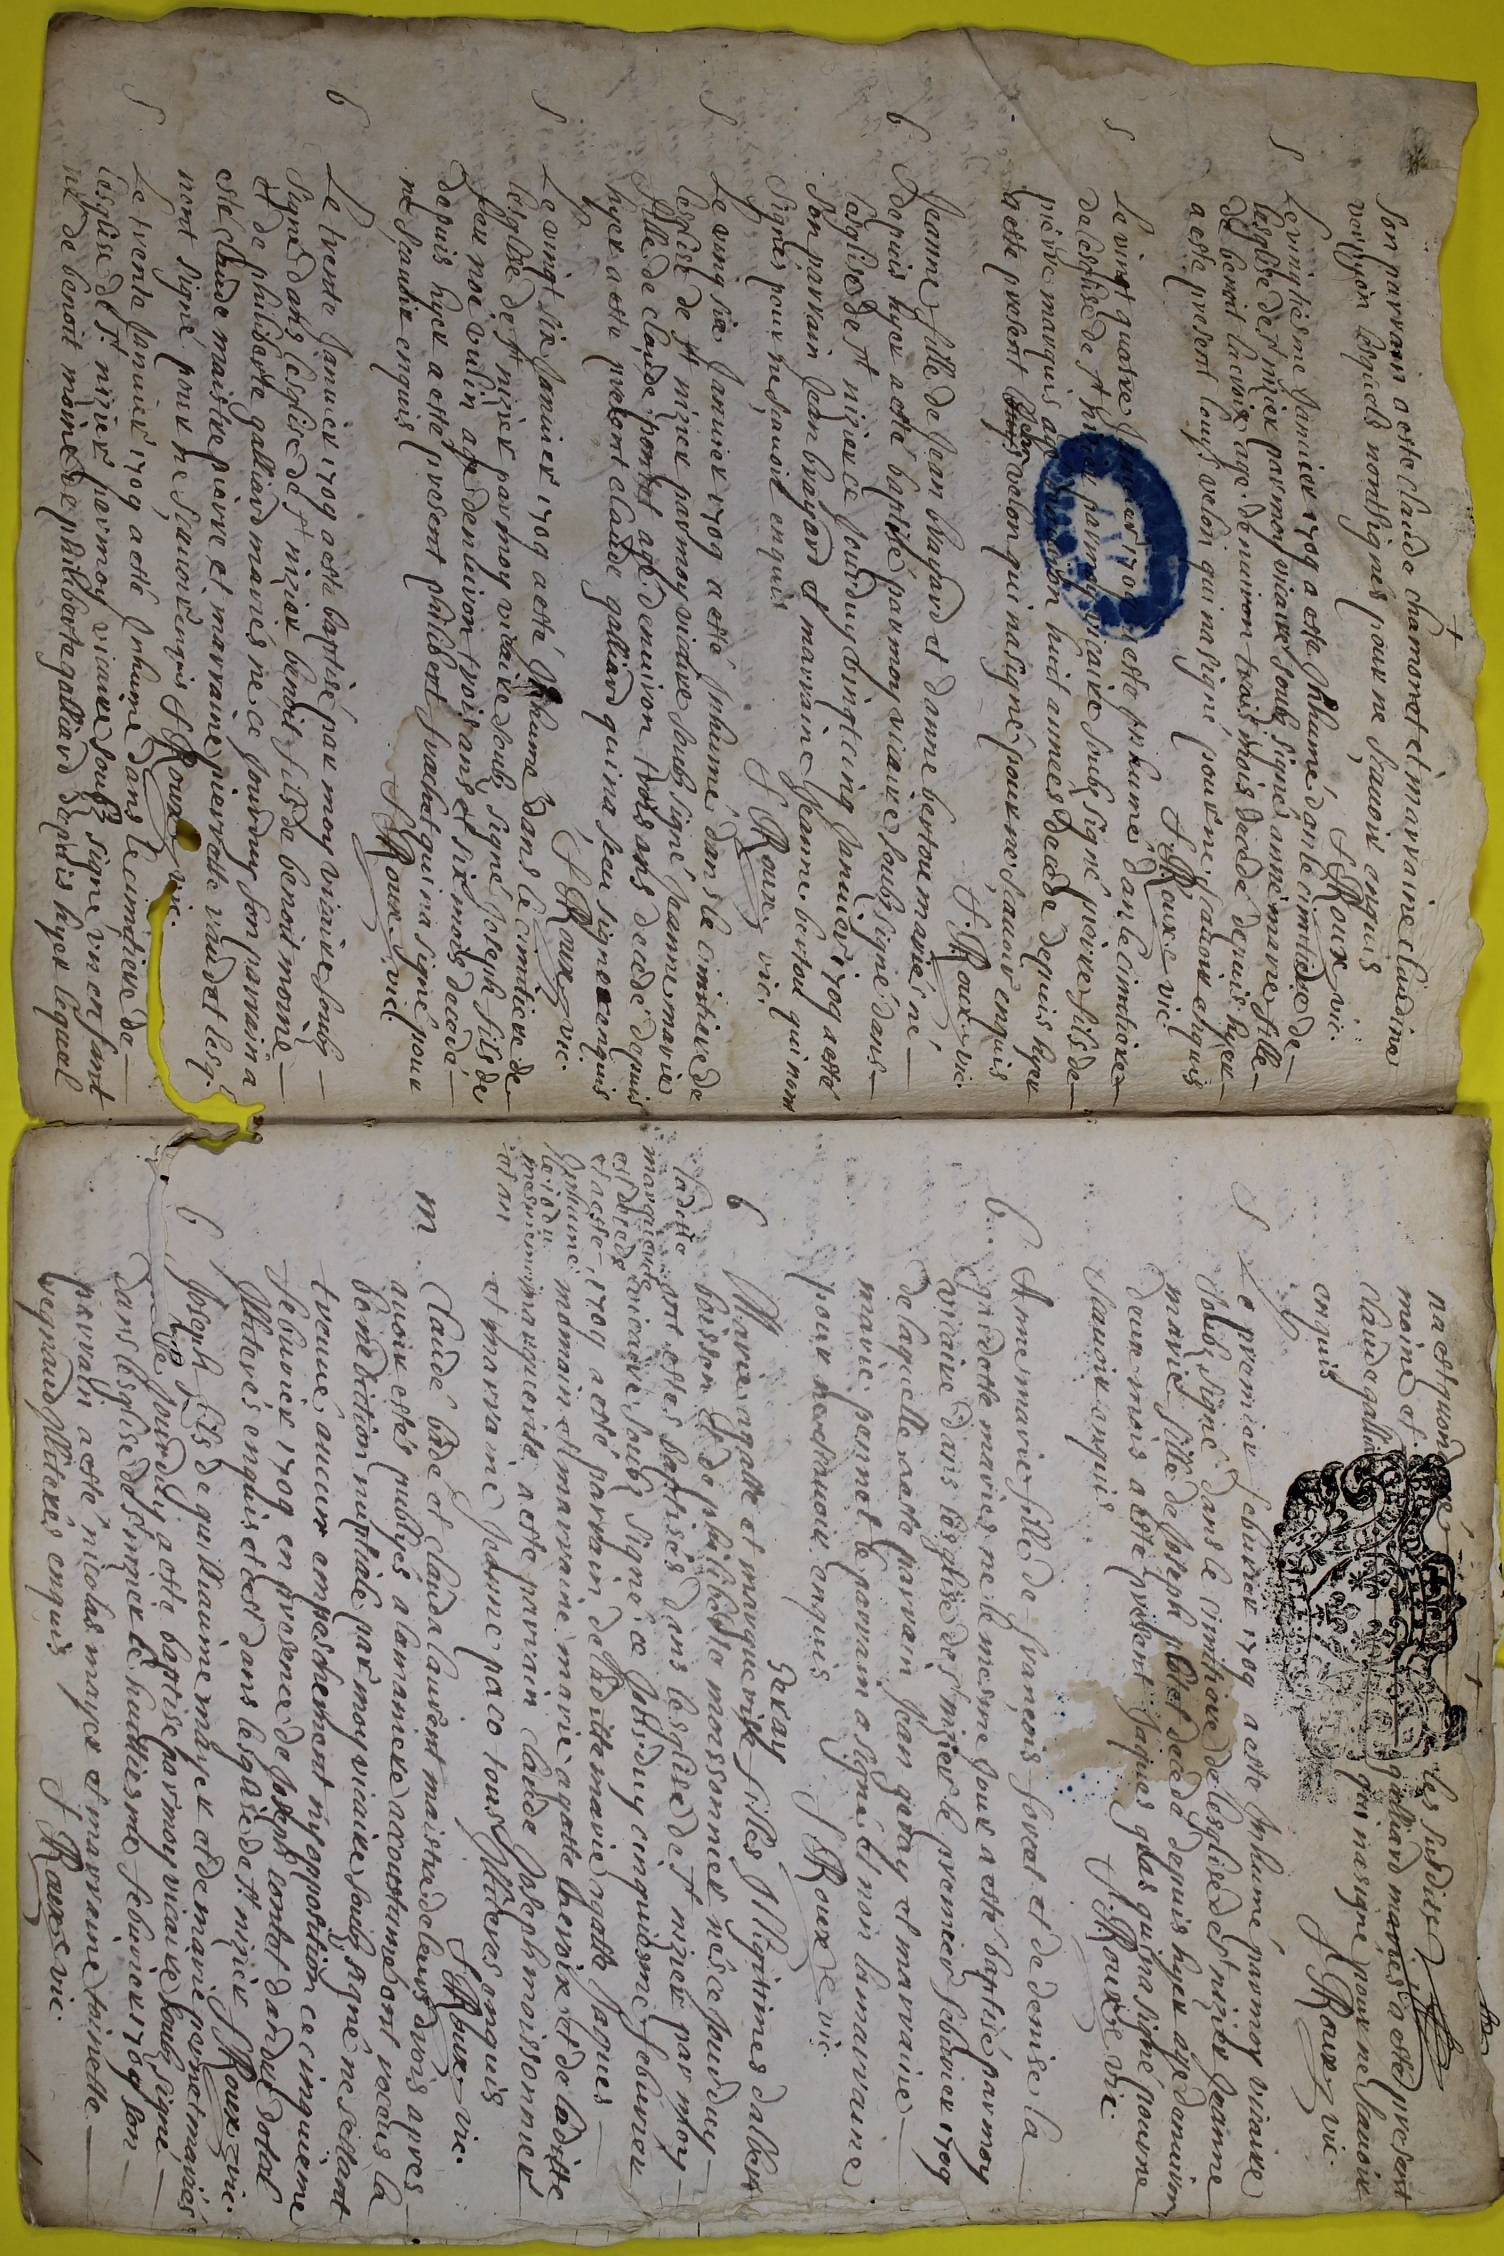 son parrain a esté claude chamonet et marraine claudine
voyson lesquels nont signés pour ne scauoir enquis
f Roux vic.
S Le vingtiesme januier 1709 a esté inhumé dan le cimitiere de
lesglise de st nizier par moy vicaire soubz signé anne marie fille
de benoit lacroix age denuiron trois mois decedé depuis hyer
a esté present louys velon qui na signé pour ne scauoir enquis
f. Roux vic
S Le vingt quatre januier 1709 a esté inhumé dan le cimitiere
de lesglise de st nizier par moy vicaire soubz signé pierre fils de
pierre marquis agé denuiron huit années decedé depuis hyer
a esté present velon qui na signé pour ne scauoir enquis
f. Roux vic.
b Jeanne fille de Jean bayard et danne bertou mariés né
depuis hyer a esté baptisé par moy vicaire soubz signé dans
lesglise de st nizier ce jourduy vingt cinq januier 1709 a esté
son parrain Jean bayard et marraine Jeanne bertou qui nont
signés pour ne scauoir enquis
f Roux vic.
S Le vingt six januier 1709 a esté inhumé dans le cimitiere de
lesglise de st nizier par moy vicaire soubz signé jeanne marie
fille de claude ponnet agé denuiron trois ans decedé depuis
hyer a esté present claude galliard qui na sceu signer enquis
f Roux vic.
S Le vingt six januier 1709 a esté inhumé dans le cimitiere de
lesglise de st nizier par moy vicaire soubz signé joseph fils de
feu noé vulin agé denuiron trois ans et six mois decedé
depuis hyer a esté present philibert frachet qui na signé pour
ne scauoir enquis
f Roux vic.
b Le trente januier 1709 a esté baptisé par moy vicaire soubz
signé dans lesglise de st nizier benoit fils de benoit moine
et de philiberte galliard mariés né ce jourduy son parrain a
esté claude maistre pierre et marraine pierrette vaudet lesq.
nont signé pour ne scauoir enquis f Roux vic.
S Le trente januier 1709 a esté inhumé dans le cimitiere de
lesglise de st nizier par moy vicaire soubz signé vn enfant
né de benoit moine et philiberte galliard depuis hyer lequel
na esté quondoyé les susdits
moine et galliard mariés a esté present
claude galliard qui na signé pour ne scauoir
enquis
f Roux vic
S Le premier feburier 1709 a esté inhumé par moy vicaire
soubz signé dans le cimitiere de lesglise de st nizier jeanne
marie fille de joseph decedé depuis hyer agé denuiron
deux mois a esté present jaques glas qui na signé pour ne
scauoir enquis
f. Roux vic.
b Anne marie fille de francois foret et de denise la
gridotte mariés né le mesme jour a esté baptisé par moy
vicaire dans lesglise de st nizier le premier feburier 1709
de laquelle a esté parrain jean geray et marraine
marie pennet le parrain a signé et non la marraine
pour ne scauoir enquis
geray f Roux vic.
b Marie agathe et marguerite filles illigitimes dalbert
boisson et de philiberte monssonnier nés ce jourduy
ont estes baptisés dans lesglise de st nizier par moy
vicaire soubz signé ce jourduy cinquiesme feburier
1709 a esté parrain de laditte marie agathe jaques
momain et marraine marie agathe lacroix et de laditte
marguerite a esté parrain claude joseph moissonnier
et marraine jeanne paco tous illiteres enquis
f Roux vic.
laditte
marguerite
est decedé
et a esté
inhumé
le jo du
mesme mois
et an
m Claude bade et claude laurent maistre de leurs droits apres
auoir estés publiés a la maniere accoustumé ont receus la
benediction nuptiale par moy vicaire soubz signé ne sestant
trouué aucun empeschement ny opposition ce cinquieme
feburier 1709 en presence de joseph contet dandué dotal
illiterés enquis et cest dans lesglise de st nizier f Roux vic.
b Joseph fils de guillaume mayer et de marie pernet mariés
né ce jourduy a esté baptisé par moy vicaire soubz signé
dans lesglise de st nizier le huittiesme feburier 1709 son
parrain a esté nicolas mayer et marraine toinette
vegnaud illiterés enquis
f Roux vic.